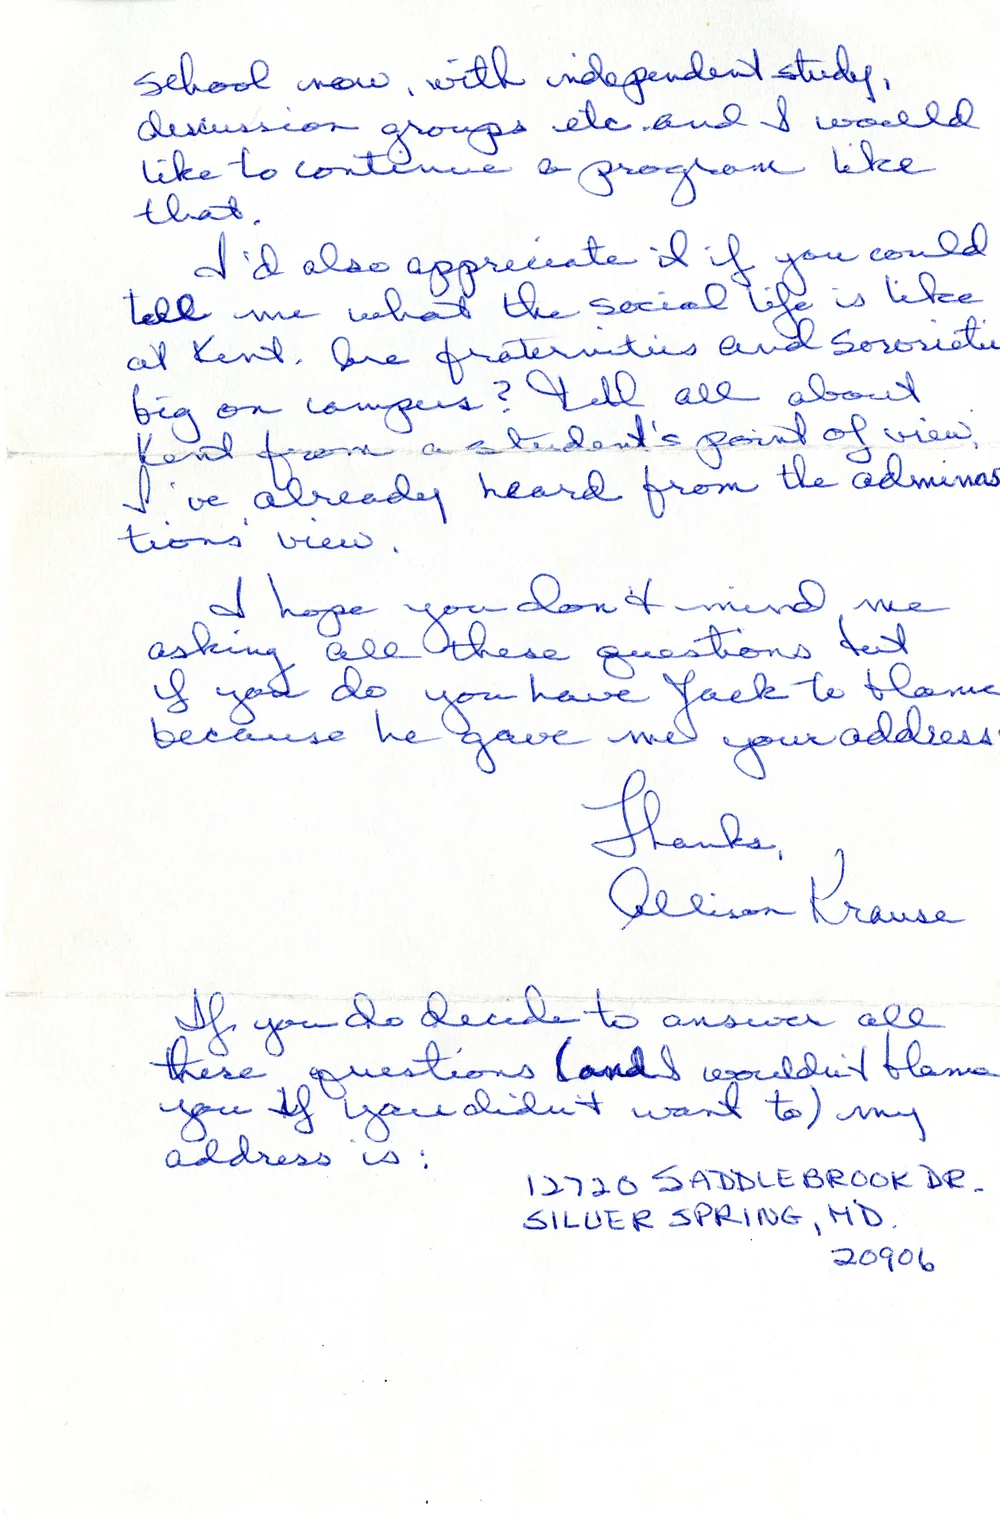 school now, with independent study,
discussion groups etc. and I would
like to continue a program like
that.
I'd also appreciate it if you could
tell me what the social life is like
at Kent. Are fraternities and sororitie
big on campus? Tell all about
Kent from a student's point of view.
I've already heard from the adminas
tions' view.
I hope you don't mind me
asking all these questions but
if you do you have Jack to blame
because he gave me your address.
Thanks,
Allison Krause
If you do decide to answer all
these questions (and I wouldn't blame
you if you didn't want to) my
address is:
12720 SADDLEBROOK DR.
SILVER SPRING, MD.
20906